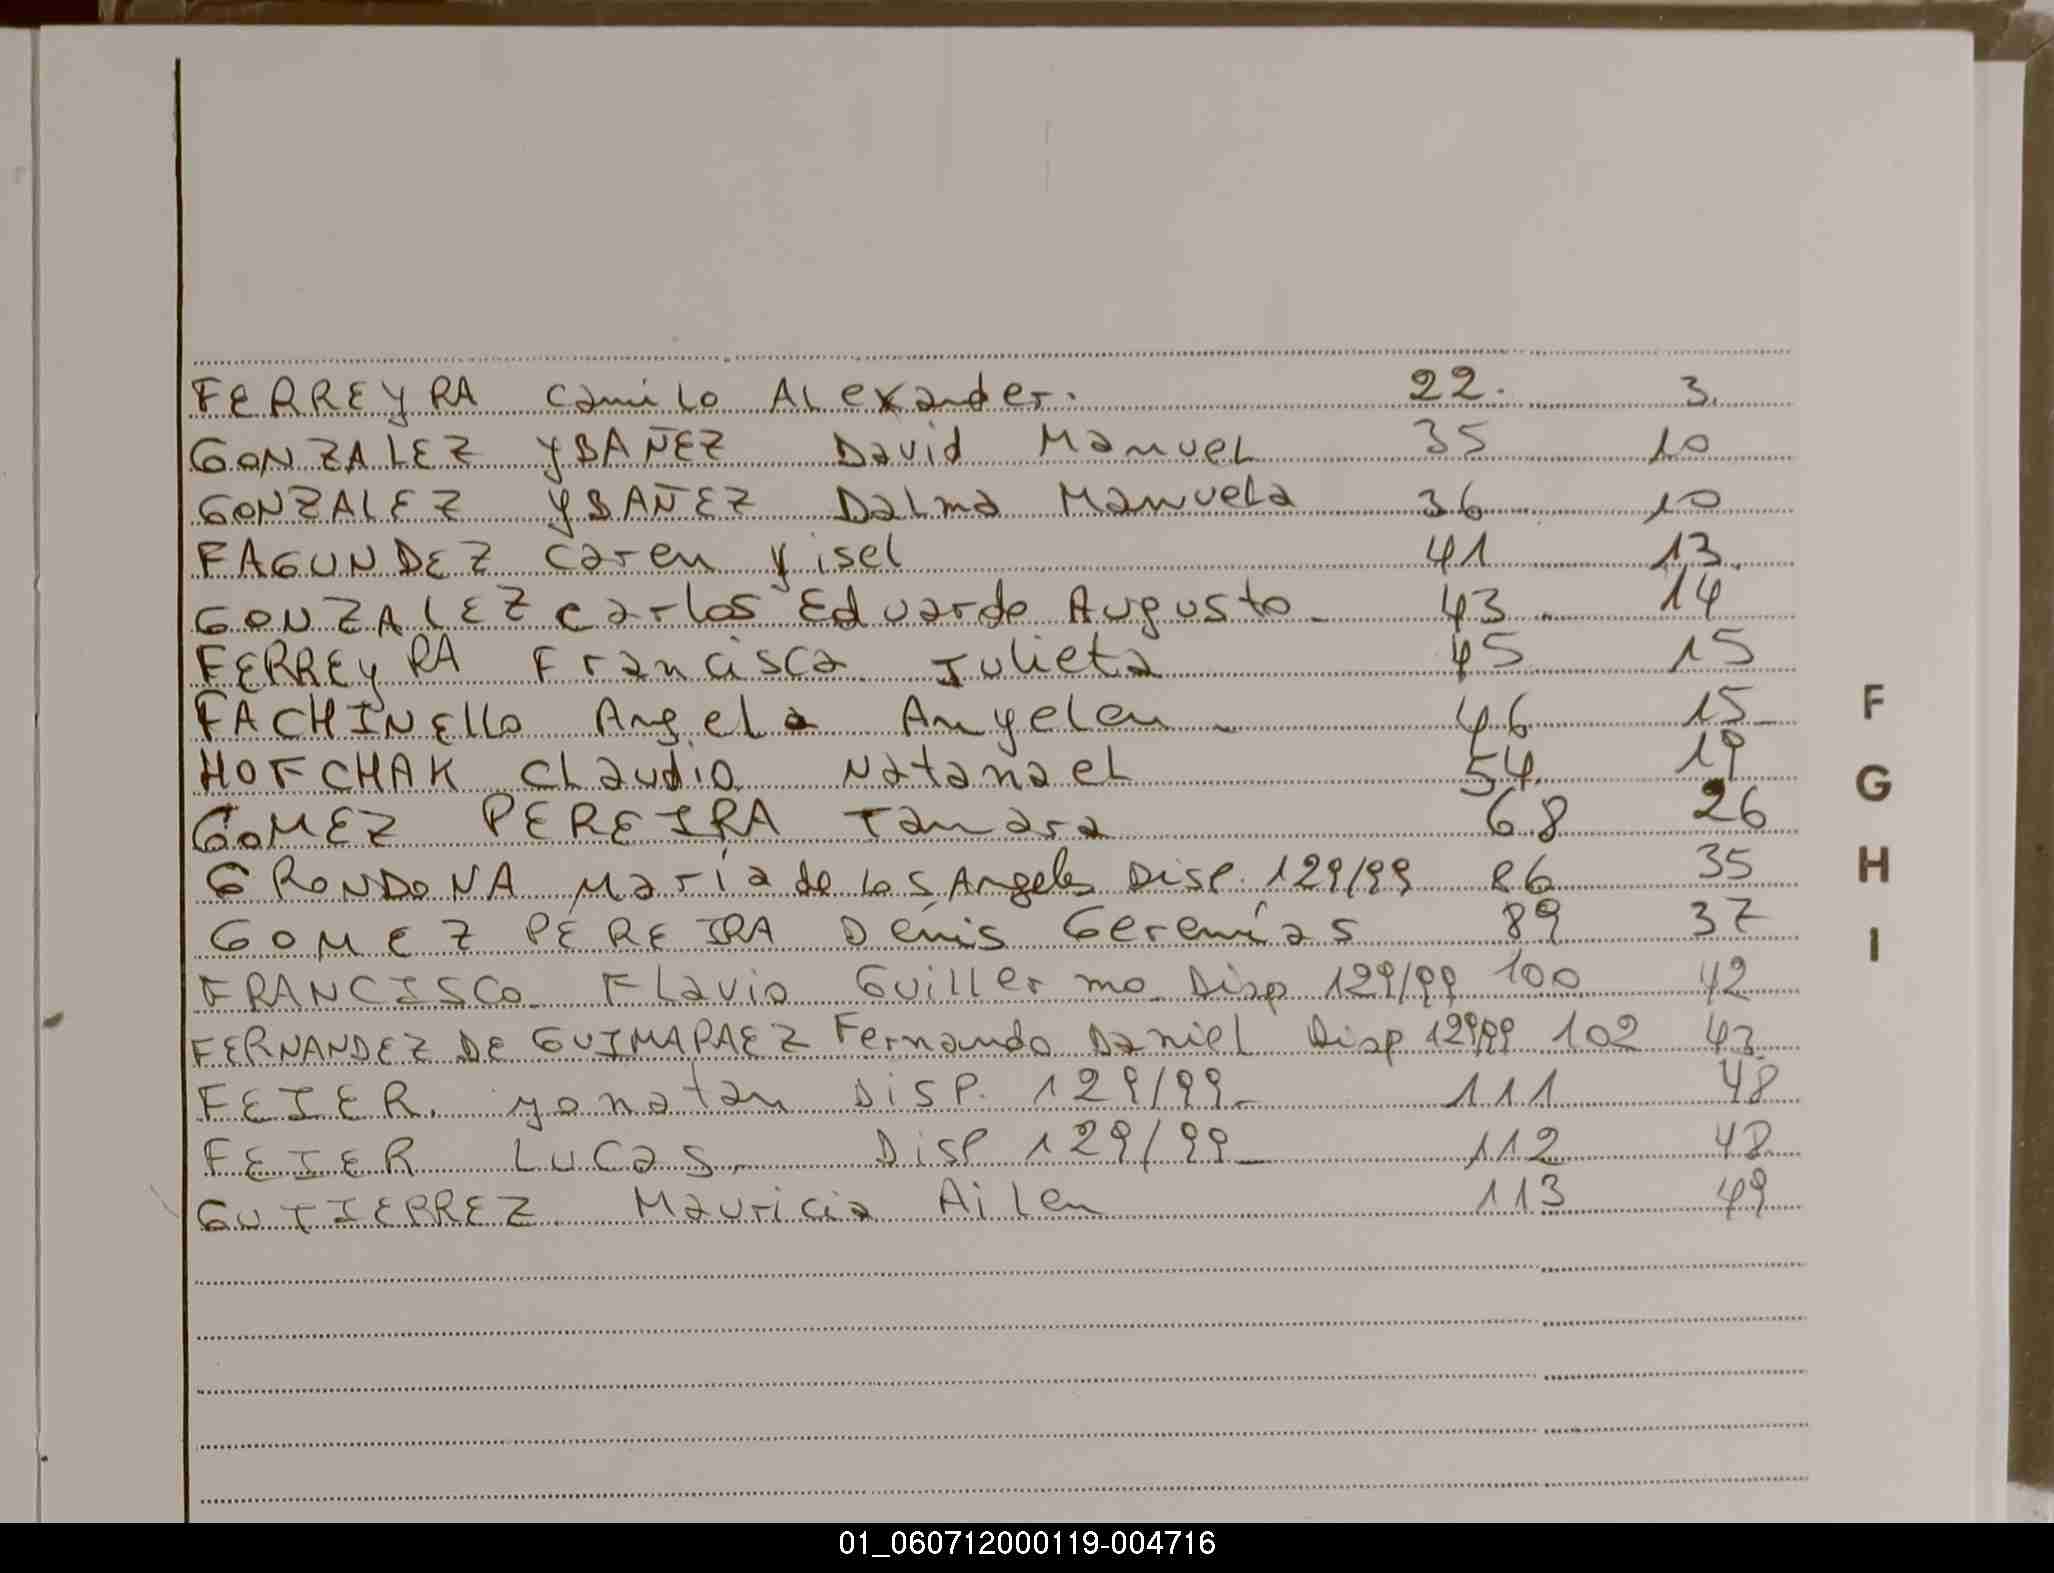 FERREYRA Camilo Alexander. 22. 3.
GONZALEZ YBAÑEZ David Manuel 35 10
GONZALEZ YBAÑEZ Dalma Manuela 36 10
FAGUNDEZ Caren Yisel 41 13.
GONZALEZ Carlos Eduardo Augusto 43 14
FERREYRA Francisca Julieta 45 15
FACHINELLO Angela Anyelen 46 15
HOFCHAK Claudio Natanael 54 19
GOMEZ PEREIRA Tamara 68 26
GRONDONA María de los Angeles Disp. 129/99 86 35
GOMEZ PEREIRA Dénis Geremías 89 37
FRANCISCO Flavio Guillermo Disp 129/99 100 42
FERNANDEZ DE GUIMARAEZ Fernando Daniel Disp 129/99 102 43
FEIER. Yonatan DISP. 129/99 111 48
FEIER LUCAS. DISP 129/99 112 48
GUTIERREZ Mauricia Ailen 113 49
F
G
H
I
01_060712000119-004716